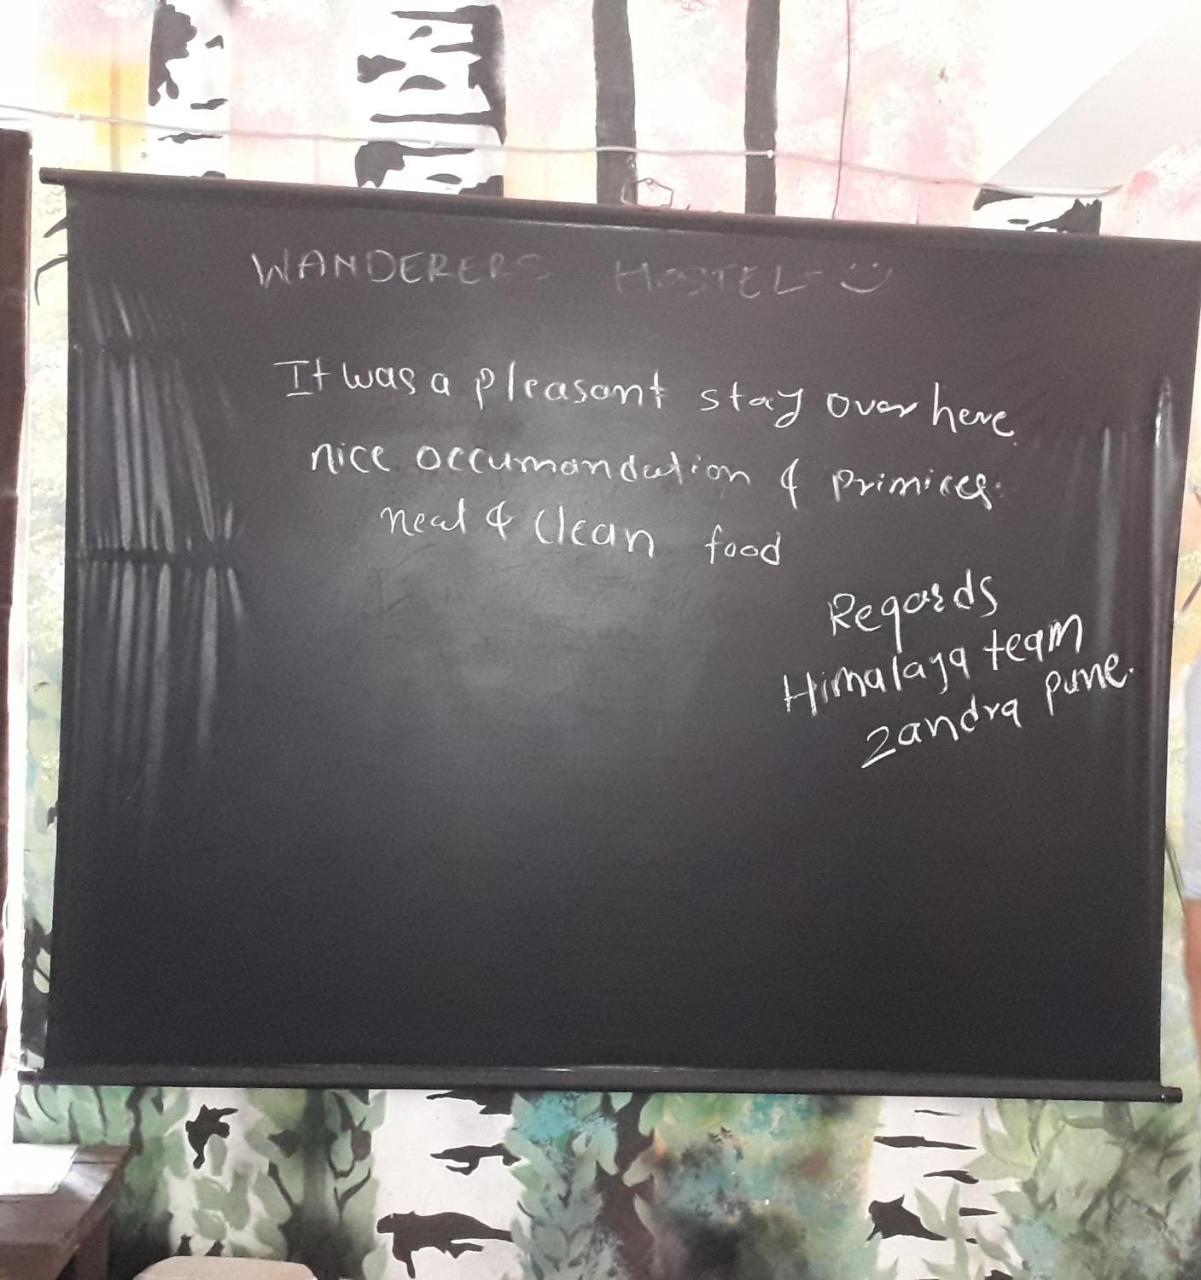 WANDERERS HOSTEL :)
It was a pleasant stay over here.
nice occumandation & primices.
neat & clean food
Regards
Himalaya team
Zandra pune.